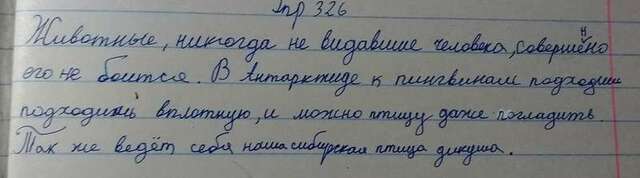 Упр 326
Животные, никогда не видавшие человека, совершенно
его не боится. В Антарктиде к пингвинам подходили
подходишь вплотную, и можно птицу даже погладить.
Так же ведёт себя наша сибирская птица дикуша.